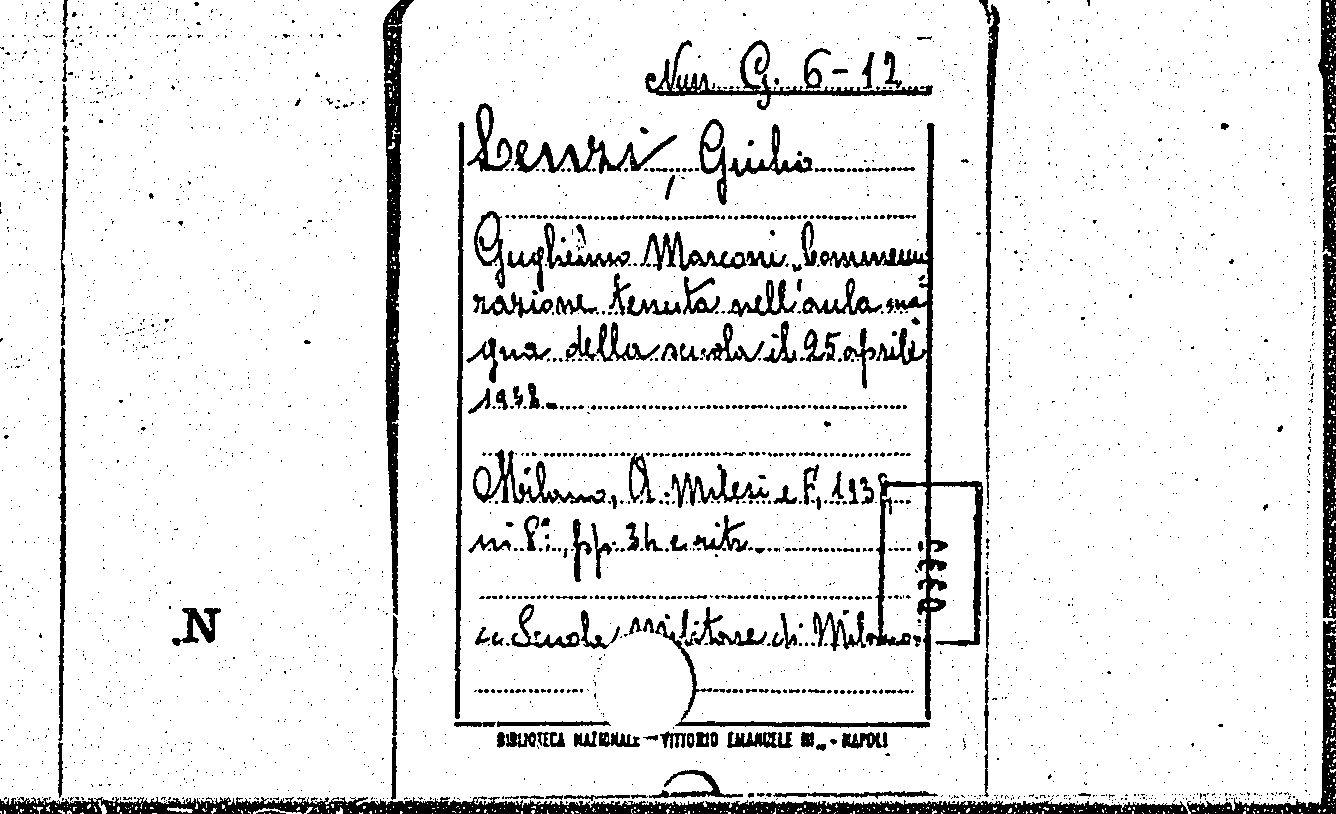 Nuir. G. 6-12
Lenzi, Giulio
Guglielmo Marconi. Commemo
razione tenuta nell'aula ma
gna della scuola il 25 aprile
1938.
Milano, A. Milesi e F., 1938,
in 8°, pp. 34 e ritr.
Scuola Militare di Milano.
.N
BIBLIOTECA NAZIONALE - VITTORIO EMANUELE III - NAPOLI